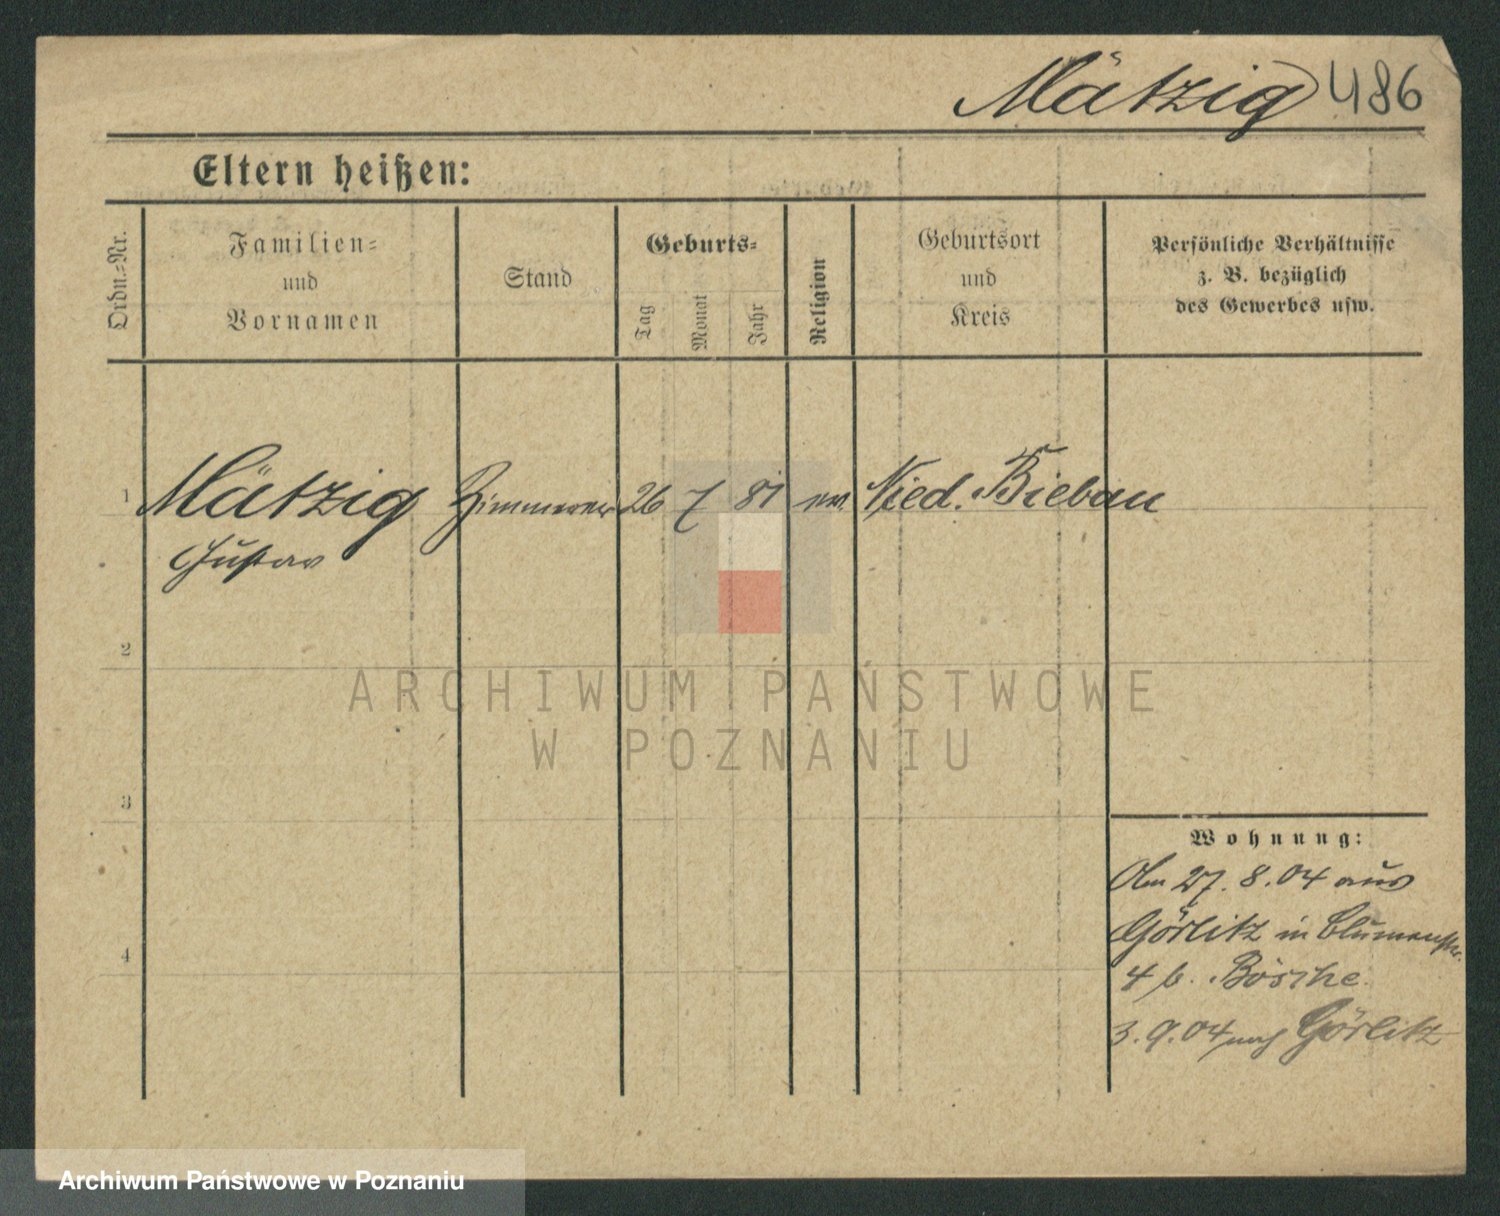 Mätzig 486
Eltern heißen:
Ordn.=Nr.
Familien=
und
Vornamen
Stand
Geburts=
Tag
Monat
Jahr
Religion
Geburtsort
und
Kreis
Persönliche Verhältnisse
z. B. bezüglich
des Gewerbes usw.
1 Mätzig Zimmerer 26 7 81 ev. Nied. Biebau
Gustav
2
ARCHIWUM PAŃSTWOWE
W POZNANIU
3
Wohnung:
Am 27. 8. 04 aus
Görlitz in Blumenstr.
4 b. Bösche
4
3. 9. 04 nach Görlitz
Archiwum Państwowe w Poznaniu